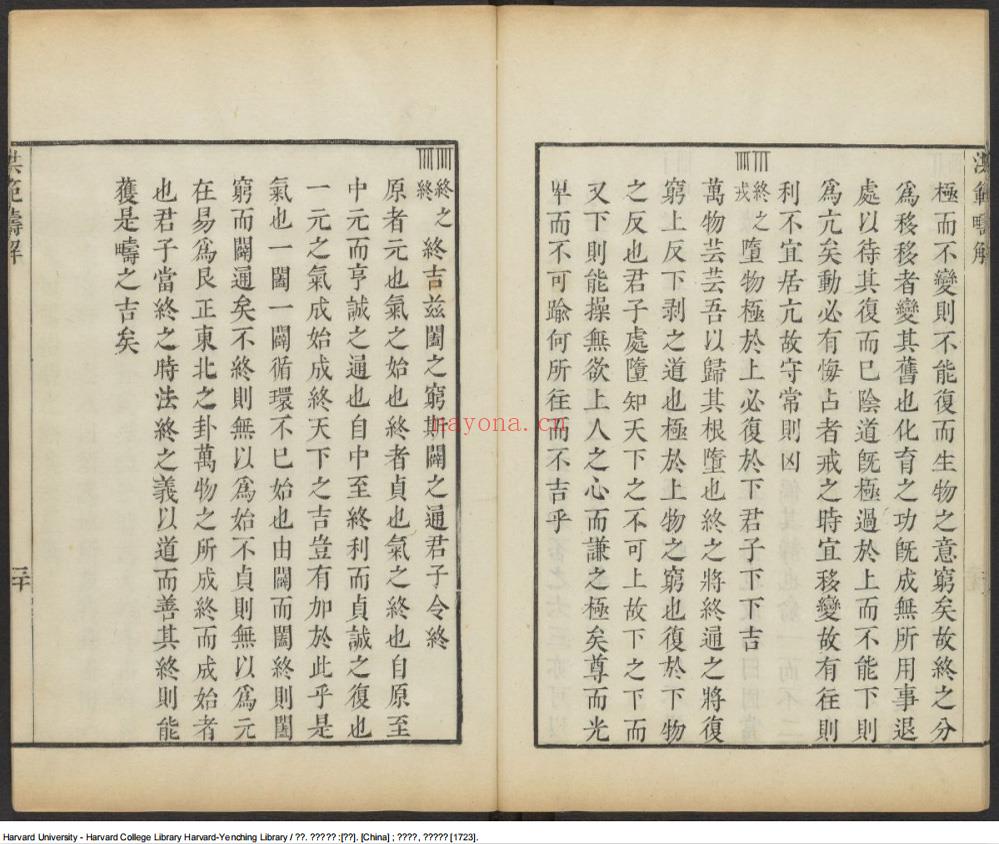 洪範疇解
極而不變則不能復而生物之意窮矣故終之分
爲移移者變其舊也化育之功旣成無所用事退
處以待其復而已陰道旣極過於上而不能下則
爲亢矣動必有悔占者戒之時宜移變故有往則
利不宜居亢故守常則凶
終之戎
墮物極於上必復於下君子下下吉
萬物芸芸吾以歸其根墮也終之將終通之將復
窮上反下剥之道也極於上物之窮也復於下物
之反也君子處墮知天下之不可上故下之下而
又下則能操無欲上人之心而謙之極矣尊而光
卑而不可踰何所往而不吉乎
終之終
終吉兹闔之窮斯闢之通君子令終
原者元也氣之始也終者貞也氣之終也自原至
中元而亨誠之通也自中至終利而貞誠之復也
一元之氣成始成終天下之吉豈有加於此乎是
氣也一闔一闢循環不已始也由闢而闔終則闔
窮而闢通矣不終則無以爲始不貞則無以爲元
在易爲艮正東北之卦萬物之所成終而成始者
也君子當終之時法終之義以道而善其終則能
獲是疇之吉矣
洪範疇解
三十
nayona.cn
Harvard University - Harvard College Library Harvard-Yenching Library / ??. ????? :[??]. [China] ; ????, ????? [1723].